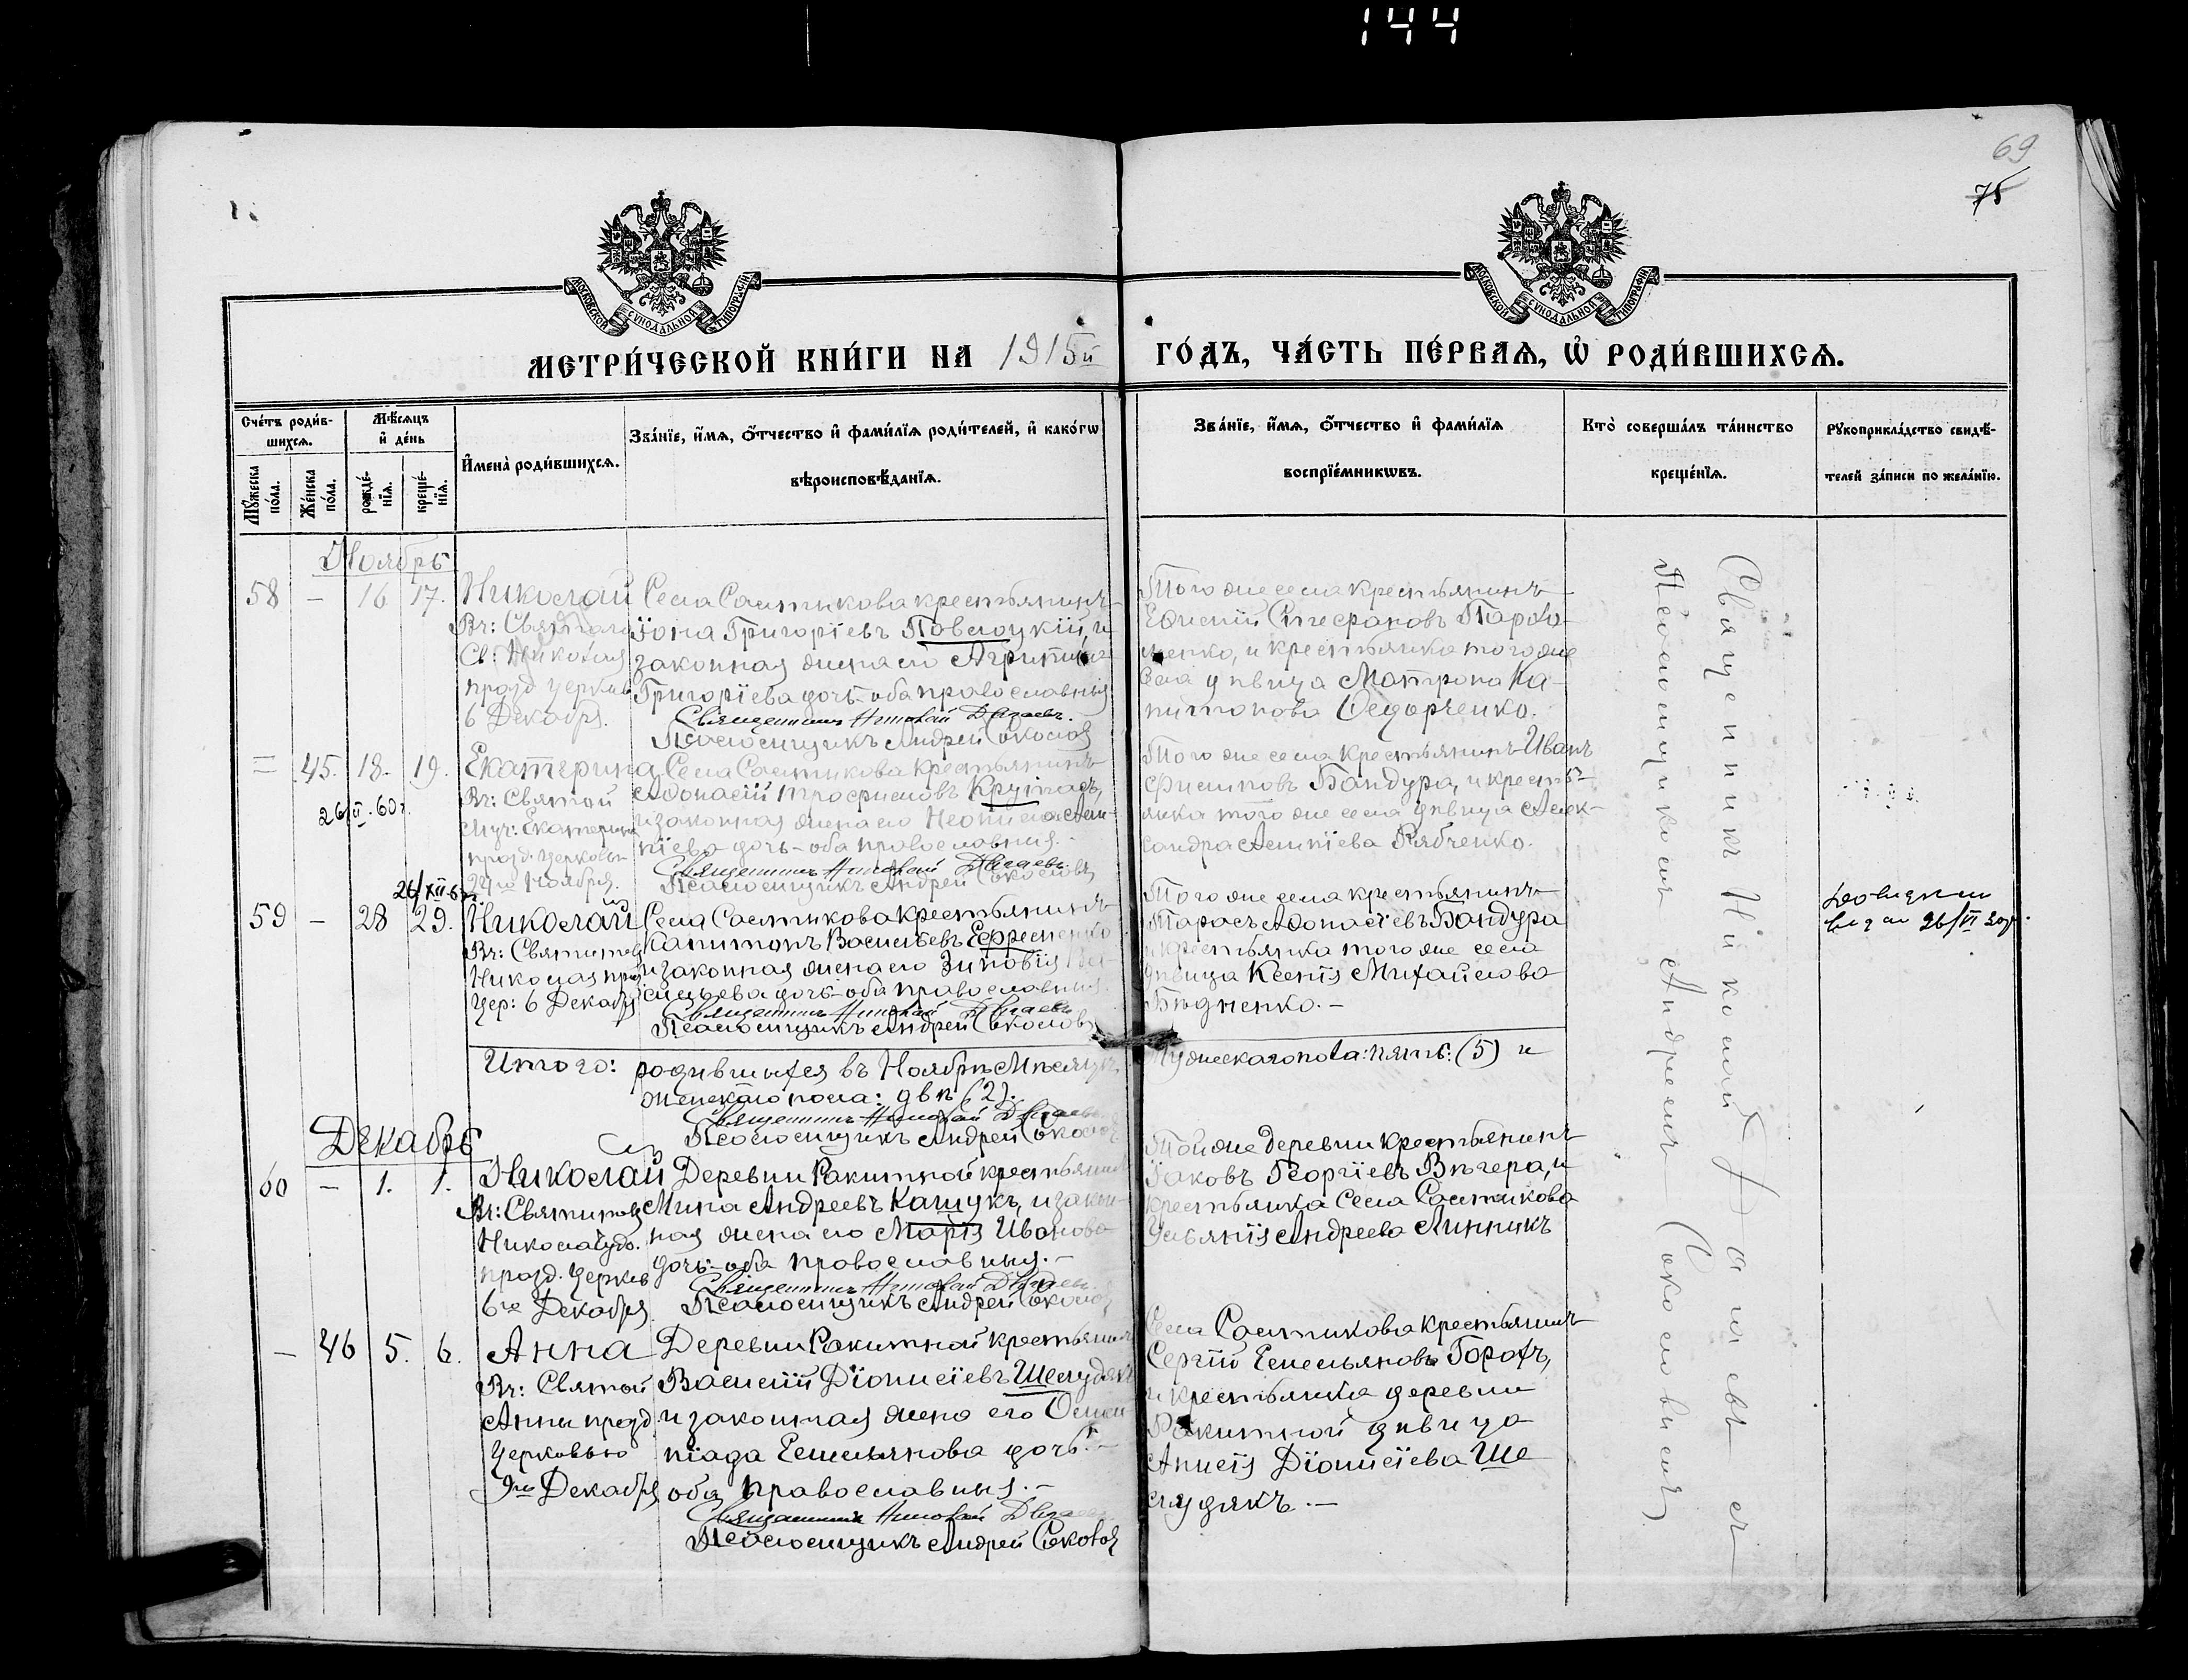 144
69
75
МОСКОВСКОЙ СѴНОДАЛЬНОЙ ТИПОГРАФІИ
МОСКОВСКОЙ СѴНОДАЛЬНОЙ ТИПОГРАФІИ
МЕТРИ́ЧЕСКОЙ КНИ́ГИ НА 1915й ГО́ДЪ, ЧА́СТЬ ПЕ́РВАѦ, Ѽ РОДИ́ВШИХСѦ.
Сче́тъ роди́в-
шихсѧ.
Мѣ́сѧцъ
и҆ де́нь
Мꙋ́жеска по́ла.
Же́нска по́ла.
рожде́-
нїѧ.
креще́-
нїѧ.
И҆мена̀ роди́вшихсѧ.
Зва́нїе, и҆́мѧ, ѻ҆́тчество и҆ фами́лїѧ роди́телей, и҆ како́гѡ
вѣроисповѣ́данїѧ.
Зва́нїе, и҆́мѧ, ѻ҆́тчество и҆ фами́лїѧ
воспрїе́мникѡвъ.
Кто̀ соверша́лъ та́инство
креще́нїѧ.
Рꙋкоприкла́дство свидѣ́-
телей за́писи по жела́нїю.
Ноябрь
58 — 16 17. Николай
Вч: Святаго
Св: Николая
празд церковью
6 Декабря.
Села Салтыкова крестьянинъ
Іона Григоріевъ Повлоцкій, и
законная жена его Агрипина
Григоріева дочь - оба православныя
Священникъ Николай
Псаломщикъ Андрей Соколовъ
Того же села крестьянинъ
Ефимій Стефановъ Пархо-
менко, и крестьянка того же
села дѣвица Матрона Ка-
питонова Федорченко.
= 45. 18. 19. Екатерина
26/II.60г.
Вч: Святой
Муч: Екатерины
празд. церковью
24го Ноября.
Села Салтыкова крестьянинъ
Афонасій Трофимовъ
и законная жена его
дочь - оба православныя.
Священникъ Николай
Псаломщикъ Андрей Соколовъ
Того же села крестьянинъ Иванъ
Филиповъ Бандура, и кресть-
янка того же села дѣвица Алек-
сандра Рябченко.
59 — 28 29. Николай
Вч: Святителя
Николая праз
Цер: 6 Декабря
Села Салтыкова крестьянинъ
Капитонъ Васильевъ Ефременко
и законная жена его Зиновія Ва-
сильева дочь - оба православныя.
Священникъ Николай
Псаломщикъ Андрей Соколовъ
Того же села крестьянинъ
Тарасъ Афонасіевъ Бандура
и крестьянка того же села
дѣвица Ксенія Михайлова
Бѣдненко. —
26/VI 30г.
Итого: родившихся въ Ноябрѣ Мѣсяцѣ, Мужескаго пола: пять: (5) и
женскаго пола: двѣ (2).
Священникъ Николай
Псаломщикъ Андрей Соколовъ
Декабрь
60 — 1. 1. Николай
Вч: Святителя
Николая
празд. церковь
6го Декабря
Деревни Ракитной крестьянинъ
Мина Андреевъ Кащукъ, и закон-
ная жена его Марія Иванова
дочь - оба православныя. —
Священникъ Николай
Псаломщикъ Андрей Соколовъ
Той же деревни крестьянинъ
Іаковъ Георгіевъ Вечера, и
крестьянка Села Салтыкова
Ульянія Андреева Линникъ
— 46 5. 6. Анна
Вч: Святой
Анны празд.
церковью
9го Декабря
Деревни Ракитной крестьянинъ
Василій Діонисіевъ Шелудякъ
и законная жена его Олим-
піада Емельянова дочь. —
оба православныя. —
Священникъ Николай
Псаломщикъ Андрей Соколовъ
Села Салтыкова крестьянинъ
Сергій Емельяновъ Горохъ,
и крестьянка деревни
Ракитной дѣвица
Анисія Діонисіева Ше
лудякъ. —
Священникъ Николай
Псаломщикомъ Андреемъ Соколовымъ